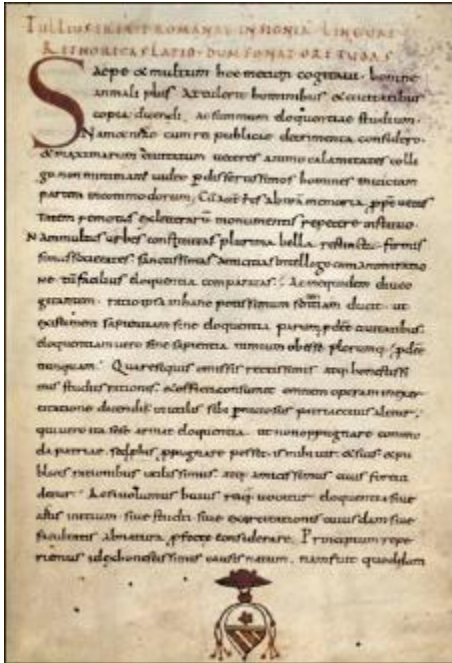 TULLIUS ERIGIT ROMANAE INSIGNIA LINGUAE
RETHORICAS LATIO DUM SONAT ORE TUBAS
Saepe & multum hoc mecum cogitaui. bonine
an mali plus attulerit hominibus & ciuitatibus
copia dicendi. ac summum eloquentiae studium.
Nam cum rei publicae detrimenta considero.
& maximarum ciuitatum ueteres animo calamitates colli
go. non minimam uideo p disertissimos homines inuectam
partem incommodorum. Cum res ab nra memoria. ppt uetus
tatem remotas ex litterarū monumentis repetere instituo.
Nam multas urbes constitutas plurima bella restincta. firmis
simas societates. sanctissimas amicitias intellego cum animi ratio
ne tū facilius eloquentia comparatas. Ac me quidem diu co
gitantem. ratio ipsa in hanc potissimum sententiam ducit. ut
existimem sapientiam sine eloquentia parum pdesse ciuitatibus.
eloquentiam uero sine sapientia nimium obesse plerumq; pdesse
nunquam. Quare si quis omissis rectissimis atq; honestissi
mis studiis rationis. & officii consumit omnem operam in exer
citatione dicendi. is inutilis sibi pniciosus patriae ciuis alitur.
qui uero ita sese armat eloquentia. ut non oppugnare commo
da patriae. sed p his ppugnare possit. is mihi uir & suis & pu
blicis rationibus utilissimus. atq; amicissimus ciuis fore ui
detur. Ac si uolumus huius rei q uocatur eloquentia siue
artis initium. siue studii. siue exercitationis cuiusdam siue
facultatis ab natura pfectae considerare. Principium repe
riemus id ex honestissimis causis natum. nam fuit quoddam